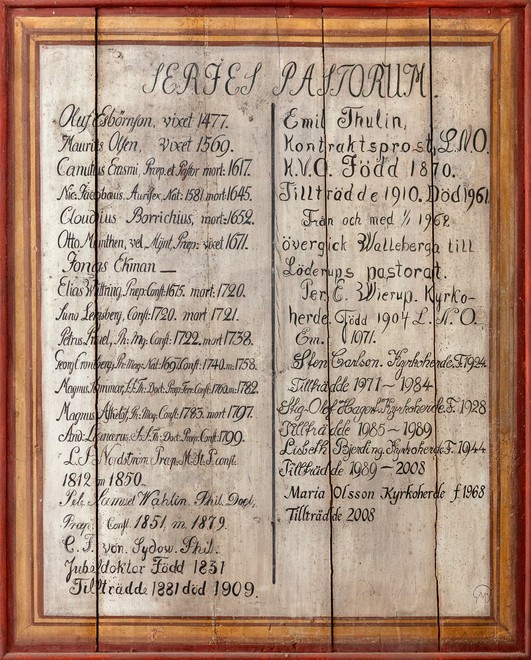 SERIES PASTORUM.
Oluf Esbörnson, vixet 1477.
Maurits Olsen, vixet 1569.
Canutus Erasmi, Præp. et Pastor mort: 1617.
Nic: Jacobæus, Aurifex, Nat: 1581. mort: 1645.
Claudius Borrichius, mort: 1652.
Otto Munthen, vel Mÿnt, Præp: vixet 1671.
Jonas Ekman —
Elias Wittring, Præp: Const: 1675. mort: 1720.
Suno Lengberg, Const: 1720. mort 1721.
Petrus Const: 1722. mort 1738.
Georg Cronberg, Nat: 1697. Const: 1740. m: 1758.
Magnus Const: 1760. m: 1782.
Magnus Const: 1783. mort 1797.
And: Const: 1799.
L. P. Nordström Præp. M. St. P. const.
1812 m 1850.
Petr. Samuel Wåhlin. Phil. Doct.
Præp: Const. 1851, m. 1879.
C. F. von. Sydow. Phil.
Jubeldoktor Född 1831
Tillträdde 1881 död 1909.
Emil Thulin,
Kontraktsprost, L.N.O.
K.V.O. Född 1870.
Tillträdde 1910. Död 1961
Från och med 1/1 1962
övergick Valleberga till
Löderups pastorat.
Per. E. Wierup. Kyrko-
herde. Född 1904 L. N. O.
Em. 1971.
Sten Carlson. Kyrkoherde. F. 1924
Tillträdde 1971 ~ 1984
Stig-Olof Hagert Kyrkoherde F. 1928
Tillträdde 1985 ~ 1989
Lisbeth Bjerding. Kyrkoherde F. 1944
Tillträdde 1989 – 2008
Maria Olsson Kyrkoherde f 1968
Tillträdde 2008